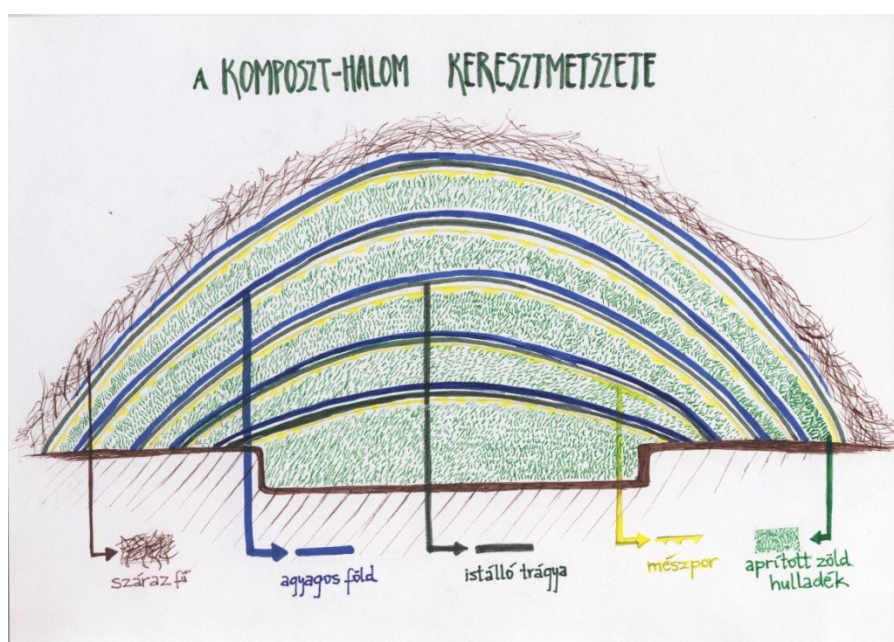 A KOMPOSZT-HALOM KERESZTMETSZETE
száraz fű
agyagos föld
istálló trágya
mészpor
aprított zöld
hulladék